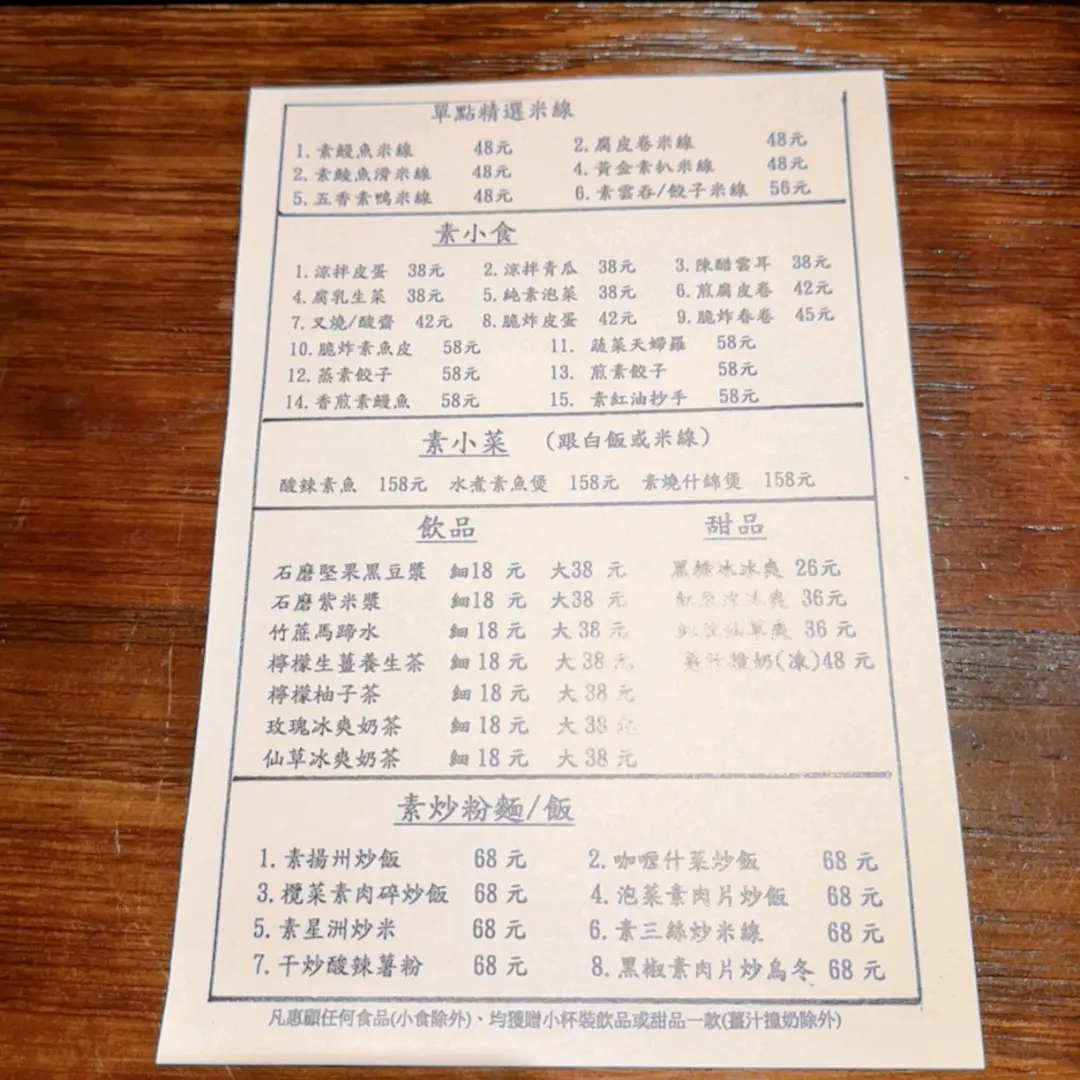 單點精選米線
1. 素鰻魚米線 48元 2. 腐皮卷米線 48元
2. 素鯪魚滑米線 48元 4. 黃金素扒米線 48元
5. 五香素鴨米線 48元 6. 素雲吞/餃子米線 56元
素小食
1. 涼拌皮蛋 38元 2. 涼拌青瓜 38元 3. 陳醋雲耳 38元
4. 腐乳生菜 38元 5. 純素泡菜 38元 6. 煎腐皮卷 42元
7. 叉燒/酸齋 42元 8. 脆炸皮蛋 42元 9. 脆炸春卷 45元
10. 脆炸素魚皮 58元 11. 蔬菜天婦羅 58元
12. 蒸素餃子 58元 13. 煎素餃子 58元
14. 香煎素鰻魚 58元 15. 素紅油抄手 58元
素小菜 (跟白飯或米線)
酸辣素魚 158元 水煮素魚煲 158元 素燒什錦煲 158元
飲品 甜品
石磨堅果黑豆漿 細18 元 大38 元 黑糖冰冰爽 26元
石磨紫米漿 細18 元 大38 元 紅豆冰冰爽 36元
竹蔗馬蹄水 細18 元 大38 元 仙草爽 36 元
檸檬生薑養生茶 細18 元 大38 元 薑汁撞奶(凍)48 元
檸檬柚子茶 細18 元 大38 元
玫瑰冰爽奶茶 細18 元 大38 元
仙草冰爽奶茶 細18 元 大38 元
素炒粉麵/飯
1. 素揚州炒飯 68 元 2. 咖喱什菜炒飯 68 元
3. 欖菜素肉碎炒飯 68 元 4. 泡菜素肉片炒飯 68 元
5. 素星洲炒米 68 元 6. 素三絲炒米線 68 元
7. 干炒酸辣薯粉 68 元 8. 黑椒素肉片炒烏冬 68 元
凡惠顧任何食品(小食除外)、均獲贈小杯裝飲品或甜品一款(薑汁撞奶除外)